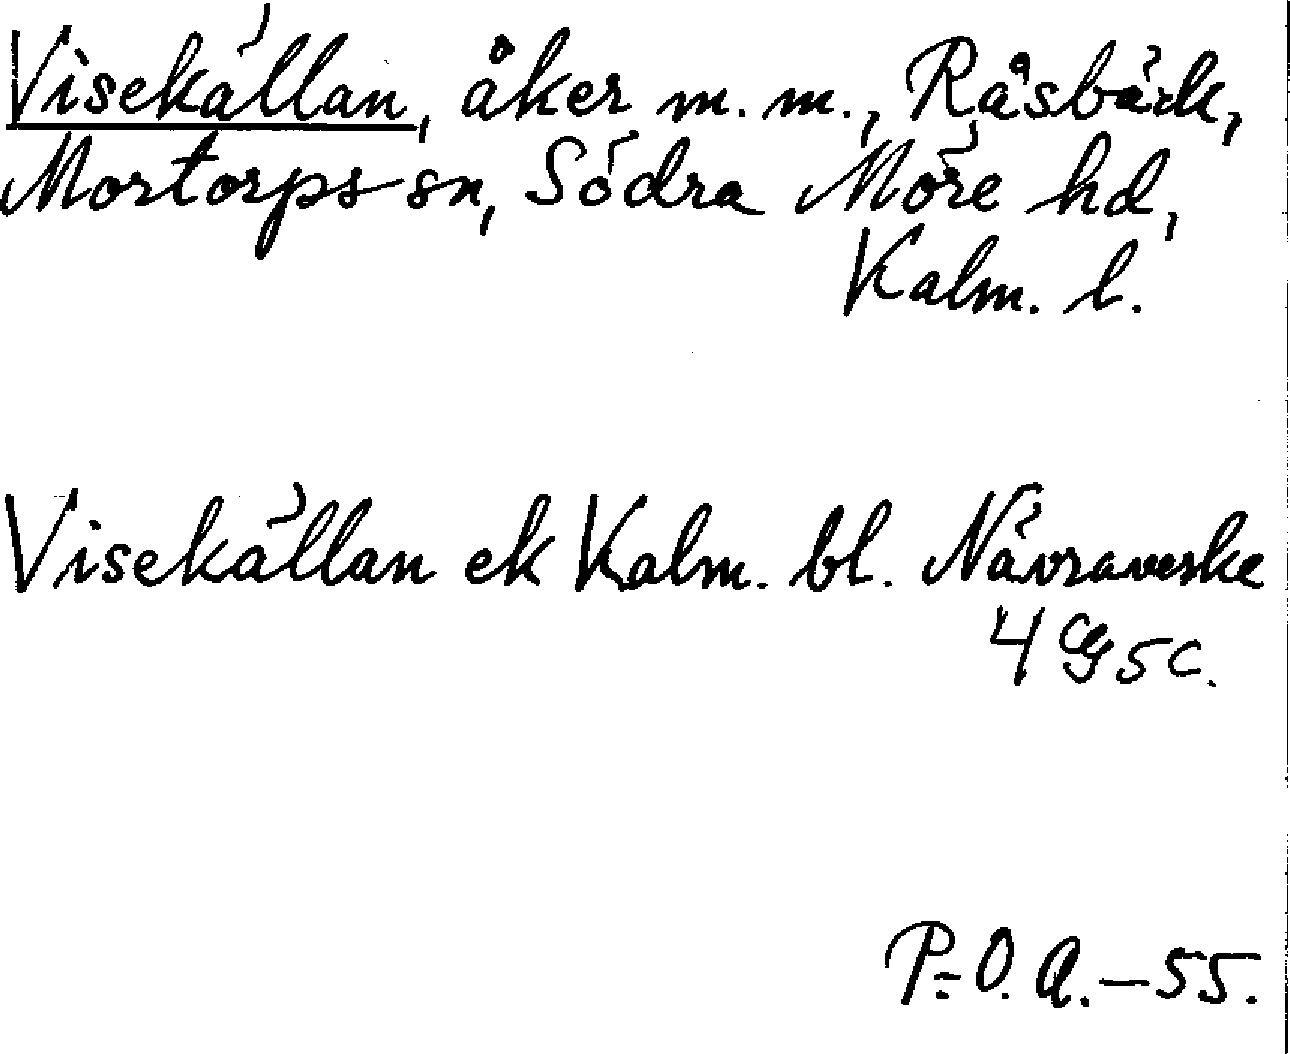 Visekällan, åker m. m., Råsbäck,
Mortorps sn, Södra Möre hd,
Kalm. l.
Visekällan ek Kalm. bl. Nävraveske
4 G 5 c.
P.-O. A. – 55.